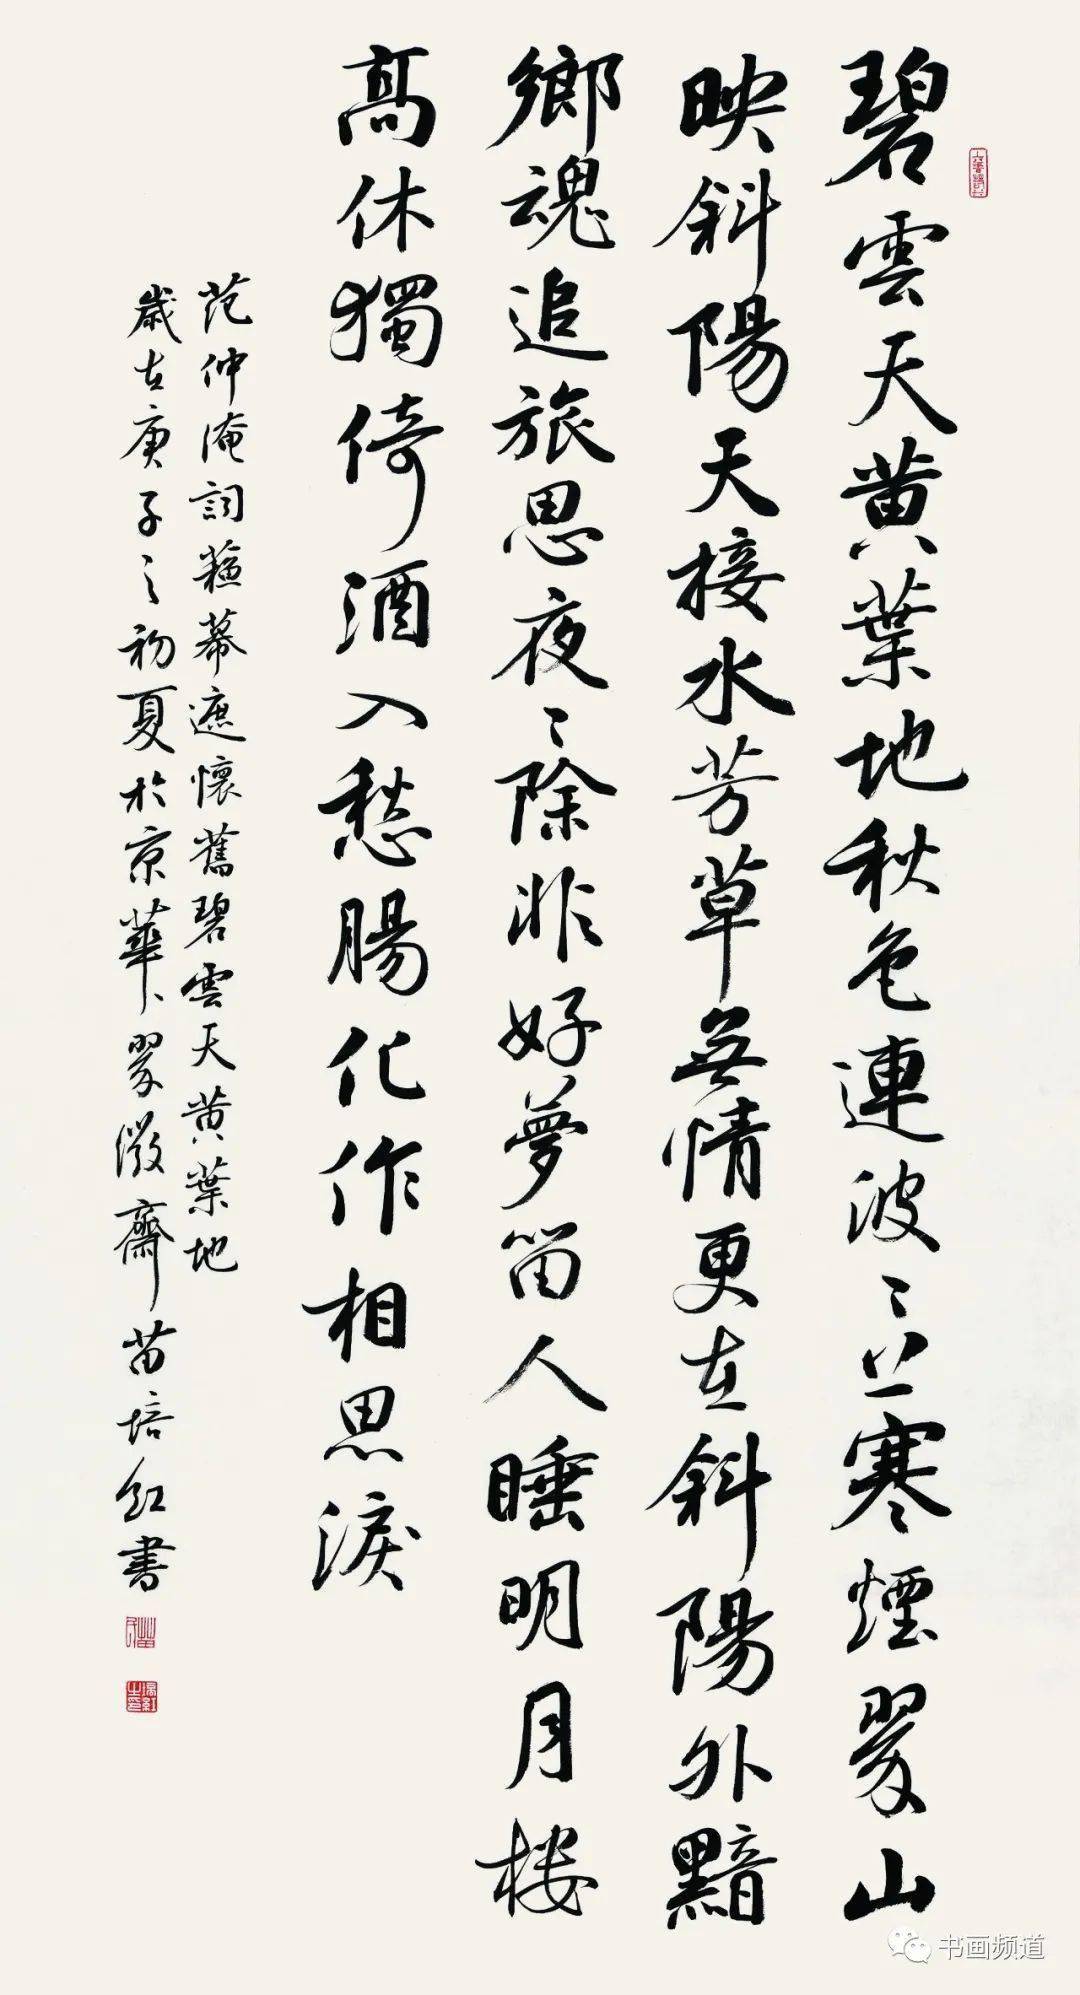 碧雲天黄葉地秋色連波〻上寒煙翠山
映斜陽天接水芳草無情更在斜陽外黯
鄉魂追旅思夜〻除非好夢留人睡明月楼
高休獨倚酒入愁腸化作相思淚
范仲淹詞蘇幕遮懷舊碧雲天黄葉地
歲在庚子之初夏於京華翠微齋苗培红书
书画频道